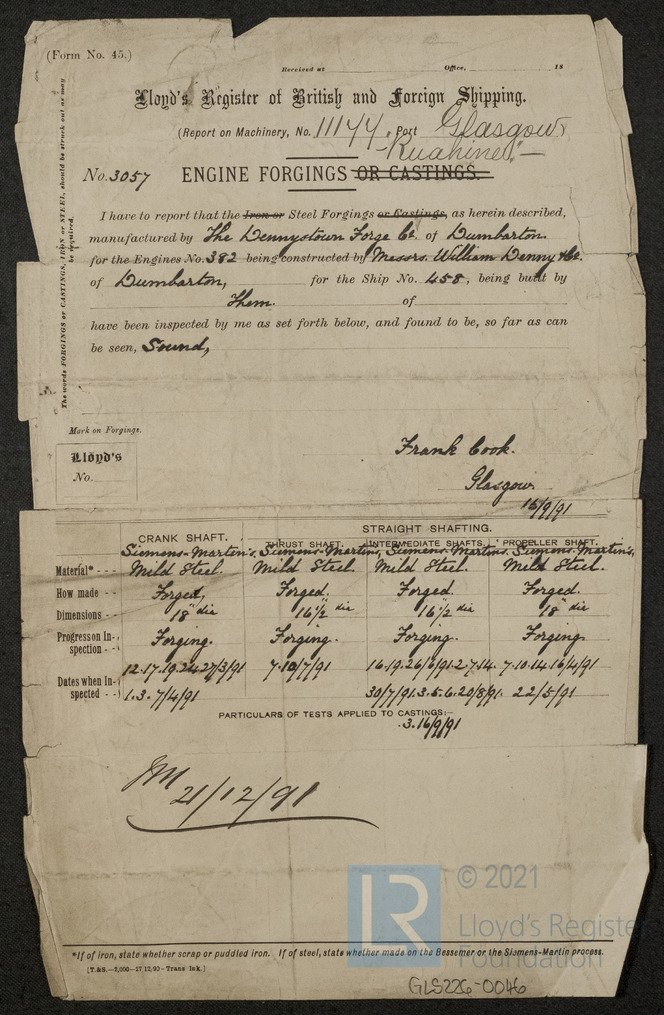 (Form No. 45.)
Received at Office, 18
Lloyd's Register of British and Foreign Shipping.
(Report on Machinery, No. 11144, Port Glasgow
"Ruahine" —
No. 3057 ENGINE FORGINGS OR CASTINGS.
The words FORGINGS or CASTINGS, IRON or STEEL, should be struck out as may be required.
I have to report that the Iron or Steel Forgings or Castings, as herein described,
manufactured by The Dennystown Forge Co. of Dumbarton
for the Engines No. 382 being constructed by Messrs. William Denny & Co.
of Dumbarton, for the Ship No. 458, being built by
Them. of
have been inspected by me as set forth below, and found to be, so far as can
be seen, Sound,
Mark on Forgings.
Lloyd's
No.
Frank Cook.
Glasgow.
16/9/91
STRAIGHT SHAFTING.
CRANK SHAFT. THRUST SHAFT. INTERMEDIATE SHAFTS. PROPELLER SHAFT.
Siemens-Martin's. Siemens-Martins, Siemens-Martins. Siemens-Martin's,
Material* - - Mild Steel. Mild Steel. Mild Steel. Mild Steel.
How made - - Forged, Forged. Forged. Forged.
Dimensions - - 18" dia 16½" dia 16½" dia 18" dia
Progress on Inspection - - Forging. Forging. Forging. Forging.
Dates when Inspected - - 12.17.19.24.27/3/91 7.10/7/91 16.19.26/6/91.2.7.14. 7.10.14.16/4/91
1.3.7/4/91 30/7/91.3.5.6.20/8/91. 22/5/91
PARTICULARS OF TESTS APPLIED TO CASTINGS:
.3.16/9/91
21/12/91
*If of iron, state whether scrap or puddled iron. If of steel, state whether made on the Bessemer or the Siemens-Martin process.
[T.&S.—2,000—17.12.90—Trans Ink.]
LR © 2021
Lloyd's Register
Foundation
GLS226-0046